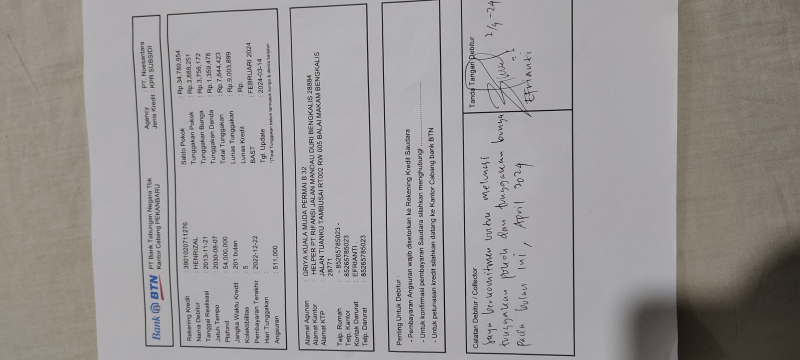 Bank BTN
PT Bank Tabungan Negara Tbk
Kantor Cabang PEKANBARU
Agency : PT. Nusantara
Jenis Kredit : KPR SUBSIDI
Rekening Kredit : 3901020711276
Nama Debitur : HENRIZAL
Tanggal Realisasi : 2013-11-21
Jatuh Tempo : 2030-08-07
Plafond : 54,000,000
Jangka Waktu Kredit : 201 bulan
Kolektibilitas : 5
Pembayaran Terakhir : 2022-12-22
Hari Tunggakan :
Angsuran : 511,000
Saldo Pokok : Rp.34,789,954
Tunggakan Pokok : Rp.3,888,251
Tunggakan Bunga : Rp.3,756,172
Tunggakan Denda : Rp.1,359,476
Total Tunggakan : Rp.7,644,423
Lunas Tunggakan : Rp.9,003,899
Lunas Kredit : Rp.
BAST : FEBRUARI 2024
Tgl. Update : 2024-03-14
Alamat Agunan : GRIYA KUALA MUDA PERMAI B 32
Alamat Kantor : HELPER PT RIFANSI JALAN MANDAU DURI BENGKALIS 28884
Alamat KTP : JALAN TUANKU TAMBUSAI RT002 RW 005 BALAI MAKAM BENGKALIS
28771
Telp. Rumah : - 85265785023 -
Telp. Kantor : 85265785023
Kontak Darurat : EFRIANTI
Telp. Darurat : 85265785023
Penting Untuk Debitur :
- Pembayaran Angsuran wajib disetorkan ke Rekening Kredit Saudara
- Untuk konfirmasi pembayaran Saudara silahkan menghubungi
- Untuk pelunasan kredit silahkan datang ke Kantor Cabang bank BTN
Catatan Debitur / Collector
Saya berkomitmen untuk melunasi
tunggakan pokok dan tunggakan bunga
pada bulan ini, April 2024
Tanda Tangan Debitur
2/4-24
Efrianti